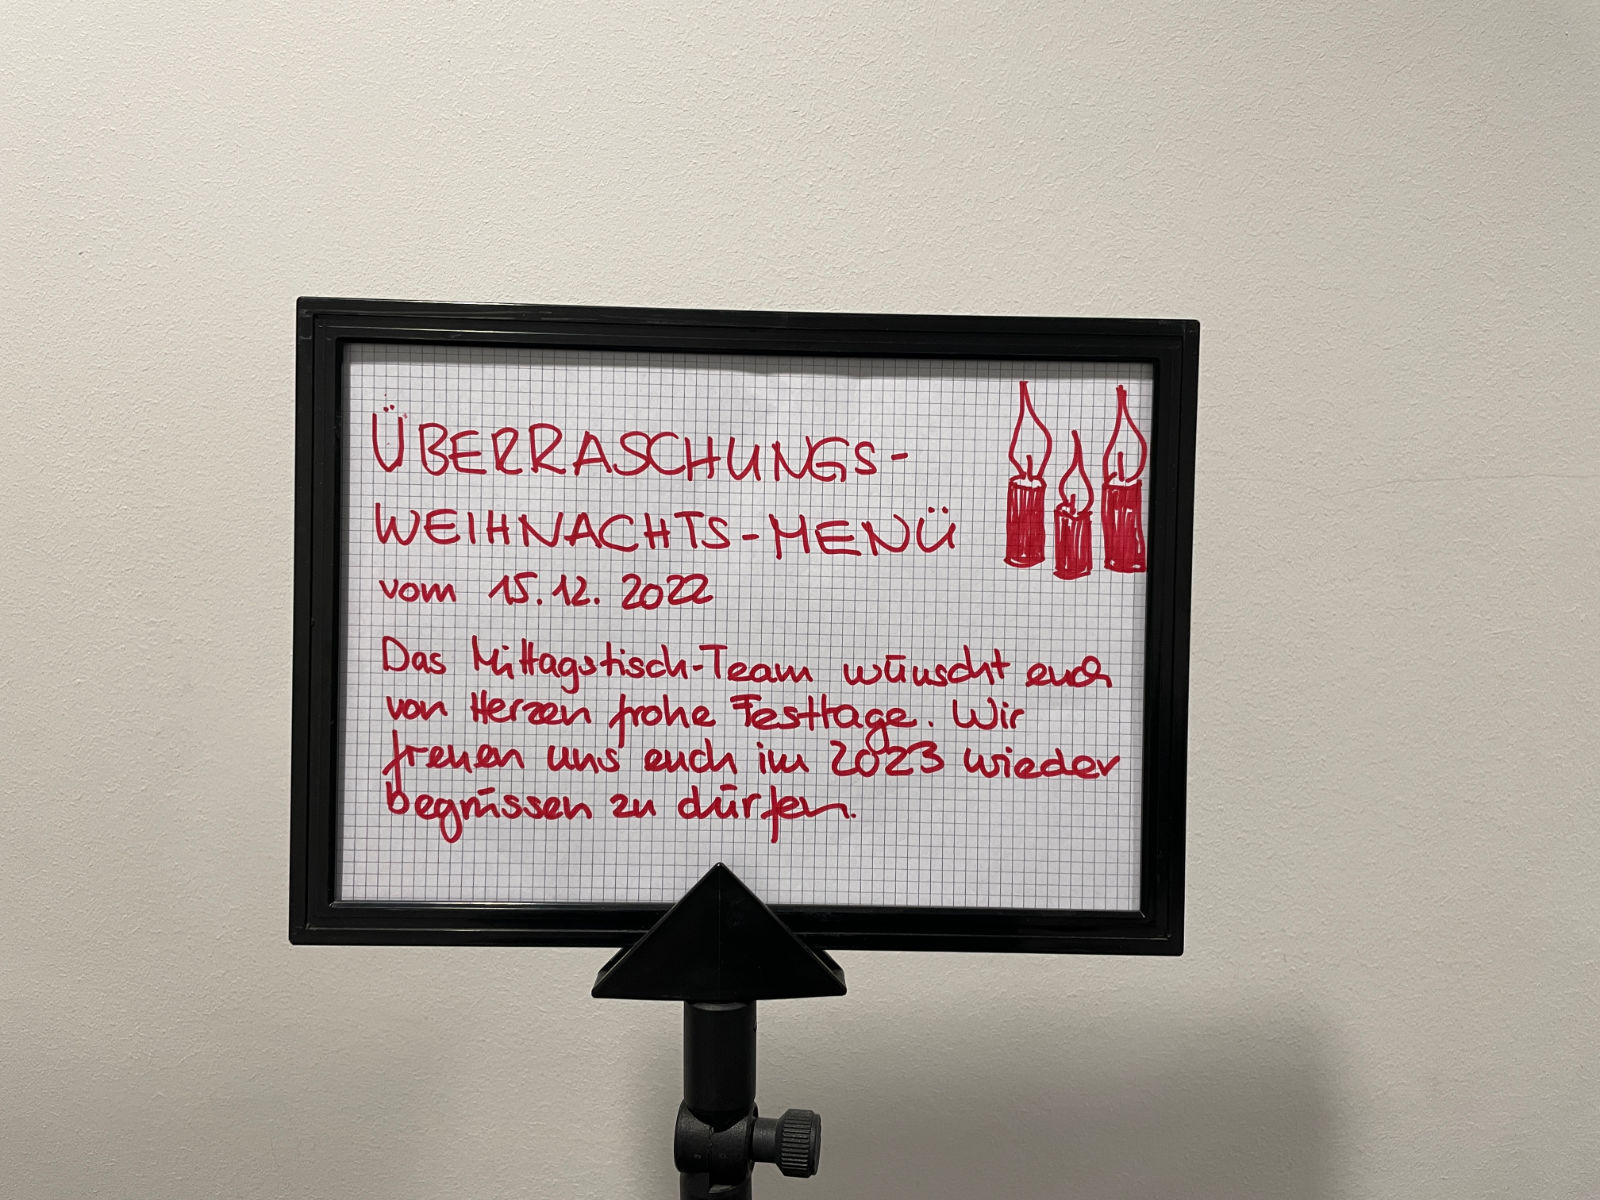 ÜBERRASCHUNGS-
WEIHNACHTS-MENÜ
vom 15.12.2022
Das Mittagstisch-Team wünscht euch
von Herzen frohe Festtage. Wir
freuen uns euch im 2023 wieder
begrüssen zu dürfen.